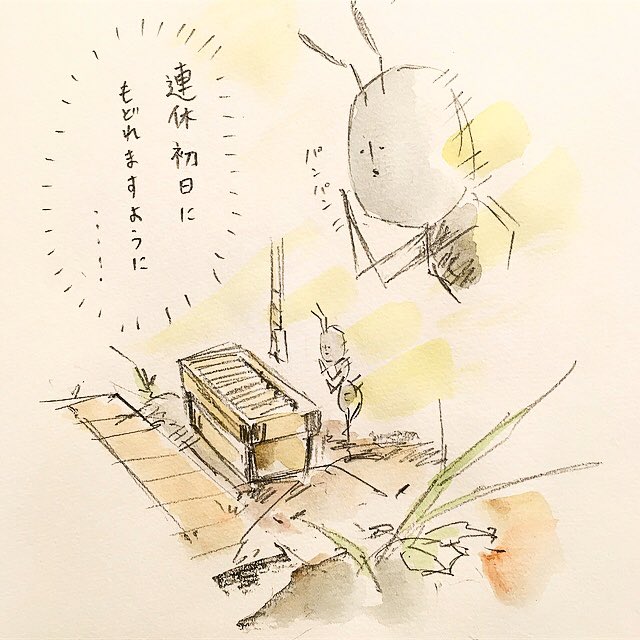 連休初日に
もどれますように
・・・・！
パンパン